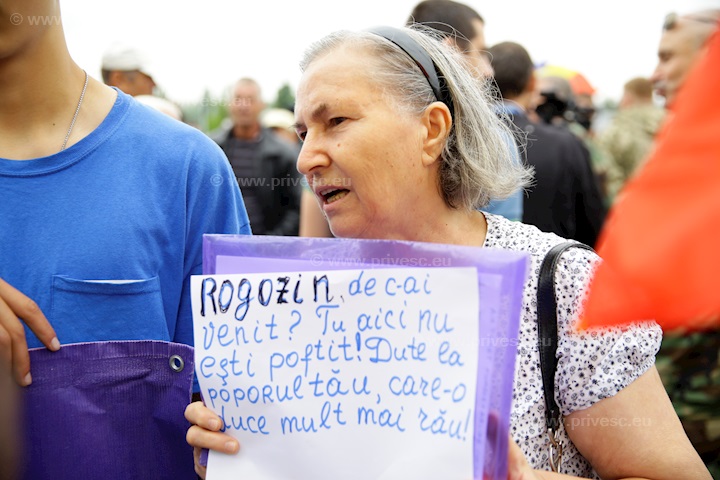 © www.privesc.eu
ROGOZIN, de c-ai
venit? Tu aici nu
ești poftit! Dute la
poporul tău, care-o
duce mult mai rău!